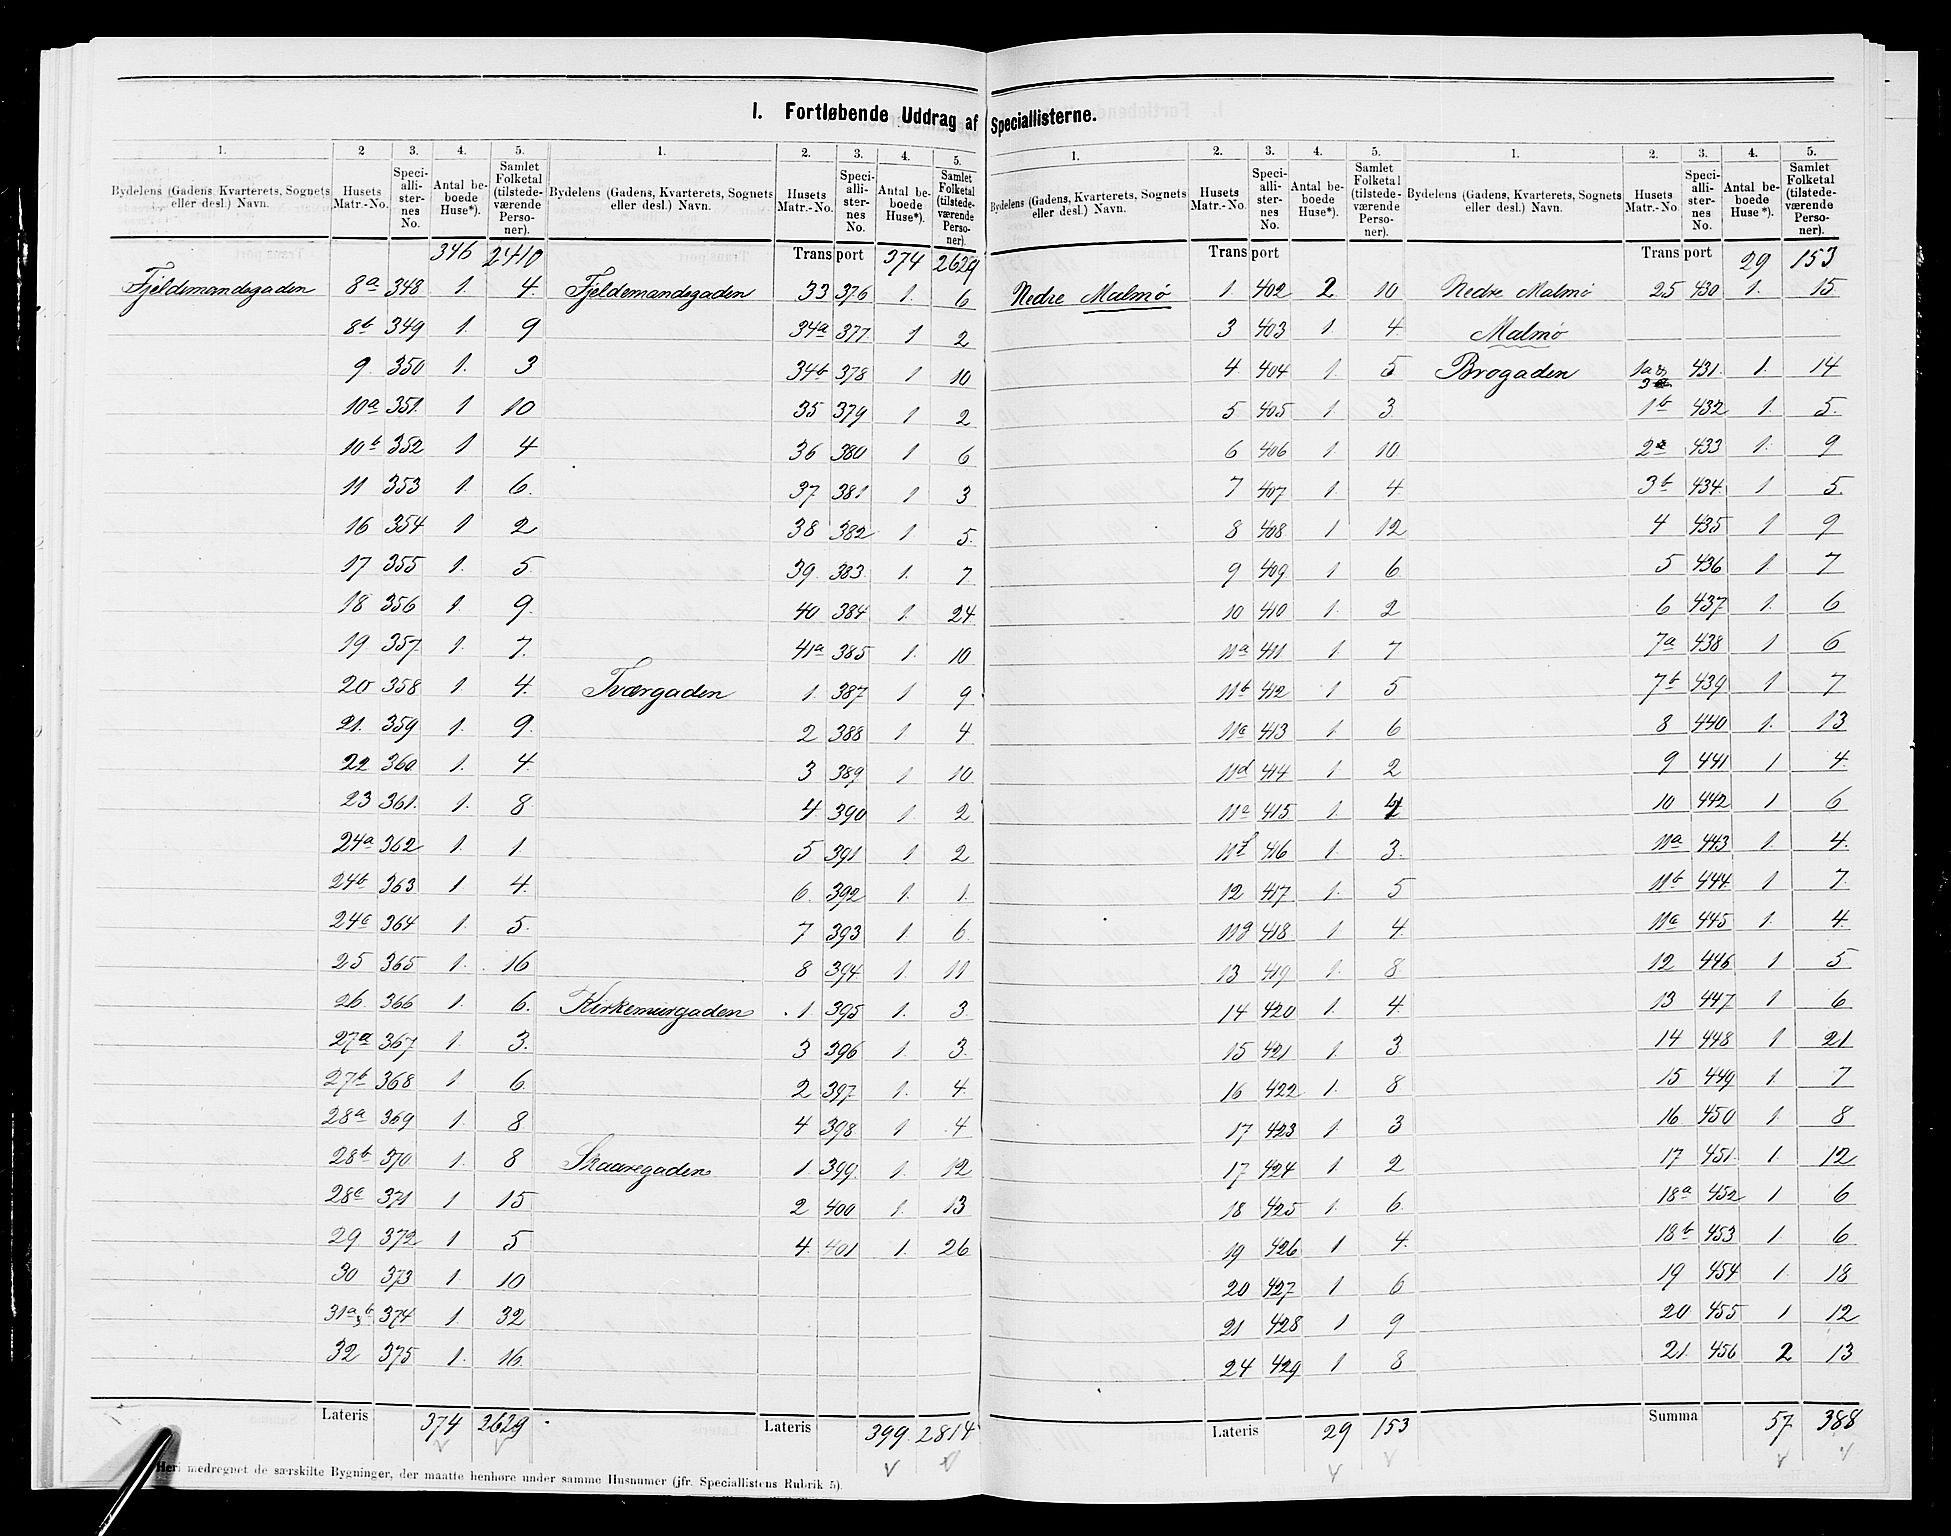 I. Fortløbende Uddrag af Speciallisterne.
1. 2 3. 4. 5. 1. 2. 3. 4. 5. 1. 2. 3. 4. 5. 1. 2. 3. 4. 5.
Bydelens (Gadens, Kvarterets, Sognets eller desl.) Navn. Husets Matr.-No. Speciallisternes No. Antal beboede Huse*). Samlet Folketal (tilstedeværende Personer).
346 2410
Fjeldemandsgaden 8a 348 1. 4.
8b 349 1. 9
9. 350 1. 3
10a 351. 1 10
10b 352 1 4
11 353 1. 6.
16 354 1 2
17 355 1. 5.
18 356 1. 9.
19 357 1. 7.
20 358 1 4.
21. 359 1. 9.
22 360 1. 4.
23 361. 1. 8
24a 362 1. 1.
24b 363 1 4.
24c 364 1. 5.
25 365 1. 16
26 366 1. 6.
27a 367 1. 3.
27b 368 1 6
28a 369 1. 8
28b 370 1. 8
28c 371 1 15
29 372 1 5
30 373 1 10
31a & b 374 1 32
32 375 1. 16
Lateris 374 2629
Bydelens (Gadens, Kvarterets, Sognets eller desl.) Navn. Husets Matr.-No. Speciallisternes No. Antal beboede Huse*). Samlet Folketal (tilstedeværende Personer).
Transport 374 2629
Fjeldemandsgaden 33 376 1. 6
34a 377. 1 2
34b 378 1 10
35 379 1 2
36 380 1 6
37 381 1 3
38 382 1 5.
39. 383. 1. 7
40 384 1. 24
41a 385 1. 10
Tværgaden 1. 387 1 9.
2 388 1 4
3 389 1 10
4. 390 1 2
5 391 1 2
6. 392 1. 1.
7 393 1. 6.
8 394 1. 11
Kirkemurgaden 1 395 1. 3.
3 396 1. 3.
2 397. 1. 4.
4 398 1 4
Skaaregaden 1 399. 1. 12
2 400 1. 13
4. 401 1. 26
Lateris 399. 2814
Bydelens (Gadens, Kvarterets, Sognets eller desl.) Navn. Husets Matr.-No. Speciallisternes No. Antal beboede Huse*). Samlet Folketal (tilstedeværende Personer).
Transport
Nedre Malmø 1. 402 2 10
3 403 1. 4.
4 404 1. 5
5 405 1 3
6 406 1 10
7 407 1. 4.
8 408 1 12
9 409 1 6
10 410 1. 2
11a 411 1 7
11b 412 1 5
11c 413 1 6
11d 414 1 2
415 1.
11f 416 1. 3.
12 417 1. 5
11g 418 1 4.
13 419 1. 8
14 420 1. 4.
15 421 1. 3
16 422 1. 8
17 423 1. 3
17 424 1 2
18 425 1. 6.
19 426 1 4.
20 427 1 6
21 428 1 9
24 429 1 8
Lateris 29 153
Bydelens (Gadens, Kvarterets, Sognets eller desl.) Navn. Husets Matr.-No. Speciallisternes No. Antal beboede Huse*). Samlet Folketal (tilstedeværende Personer).
Transport 29 153
Nedre Malmø 25 430 1. 15
Malmø
Brogaden 431. 1. 14
1b 432 1. 5.
2 433 1. 9
3b 434. 1 5.
4 435 1 9
5 436 1 7
6 437 1. 6
7a 438 1 6
7b 439 1 7
8 440 1. 13
9 441 1 4.
10 442 1 6
11a 443 1. 4.
11b 444 1 7.
11c 445 1. 4.
12 446 1 5
13 447 1 6
14 448 1 21
15 449 1. 7
16 450 1 8
17 451. 1. 12
18a 452 1 6
18b 453 1. 6
19 454 1. 18
20 455 1 12
21. 456 2 13
Summa 57 388
Heri medregnet de særskilte Bygninger, der maatte henhøre under samme Husnumer (jfr. Speciallistens Rubrik 5).